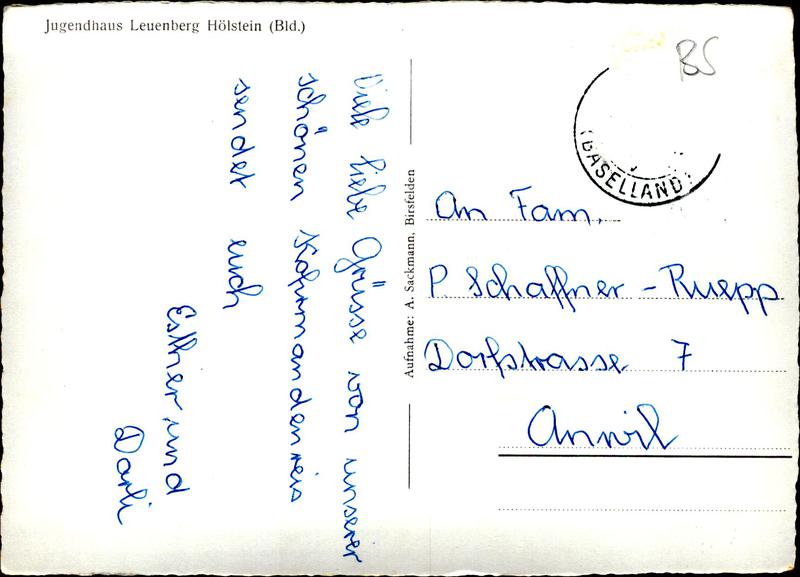 Jugendhaus Leuenberg Hölstein (Bld.)
BS
(BASELLAND)
Viele liebe Grüsse von unserer
schönen
sendet euch
Esther und
Aufnahme: A. Sackmann, Birsfelden
An Fam.
P Schaffner - Ruepp
Dorfstrasse 7
Anwil